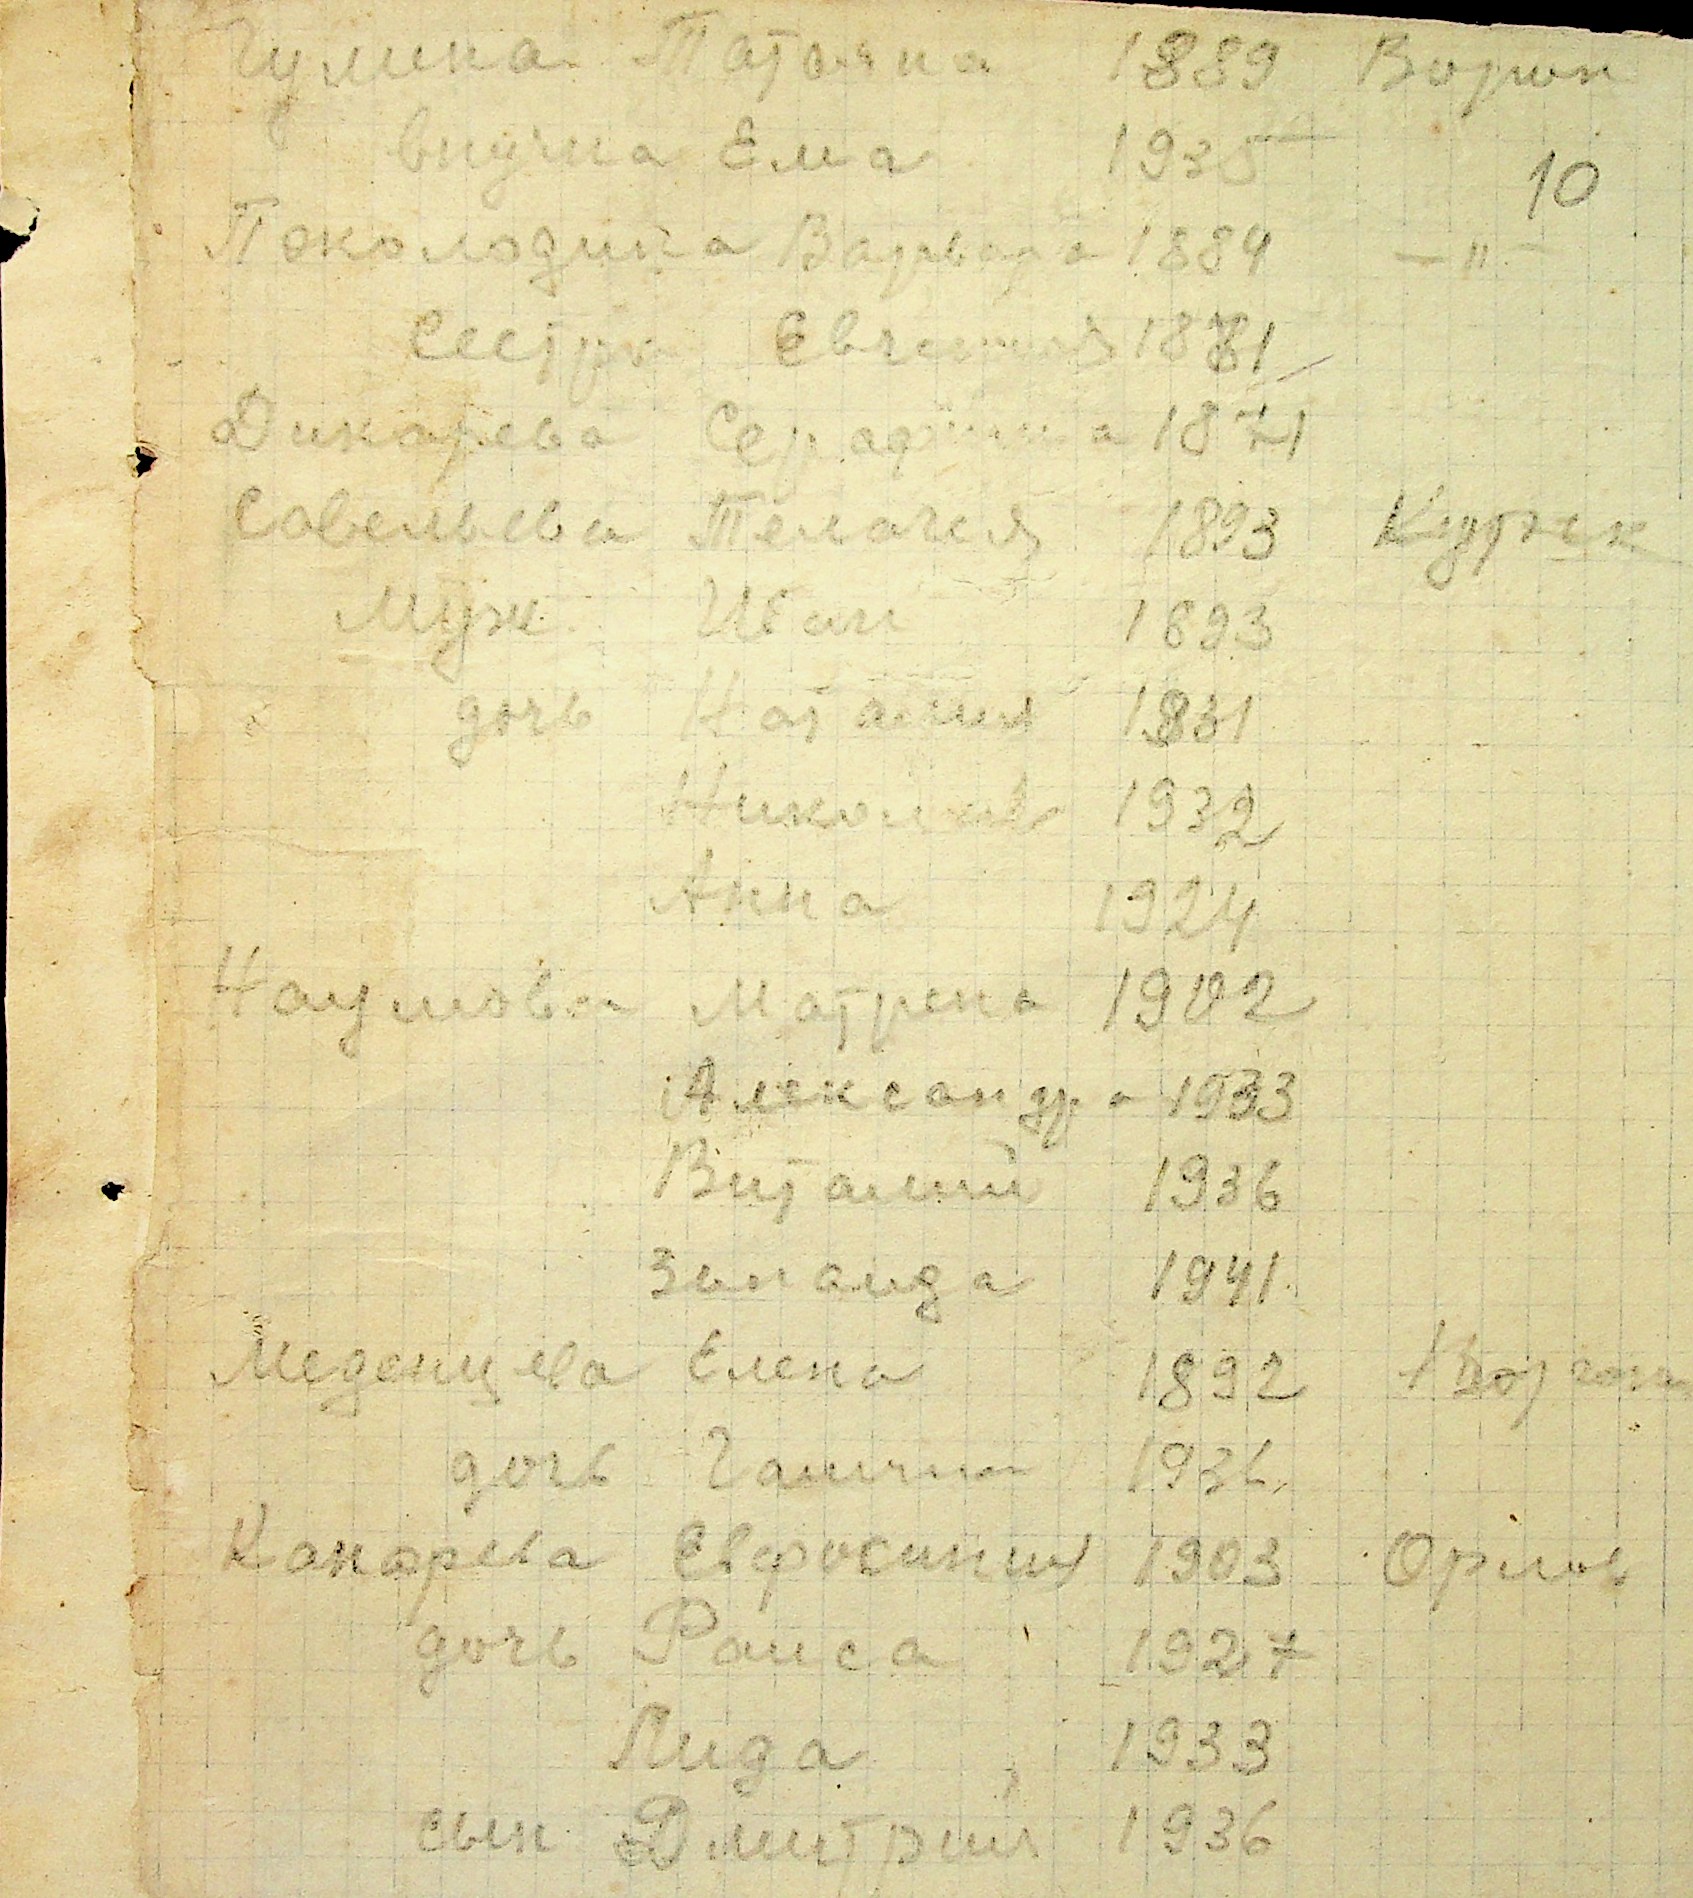 Гулина Татьяна 1889 Ворон
внучка Ема 1935
10
Поколодина Варвара 1884 —"—
сестра Евгения 1881
Дикарева Серафима 1871
Савельева Пелагея 1893 Курск
муж Иван 1893
дочь Наталия 1931
Николай 1932
Анна 1924
Наумова Матрена 1902
Александра 1933
Виталий 1936
Зинаида 1941
Меденцева Елена 1892
дочь Галина 1936
Канарева Евфросиния 1903 Орлов
дочь Раиса 1927
Лида 1933
сын Дмитрий 1936